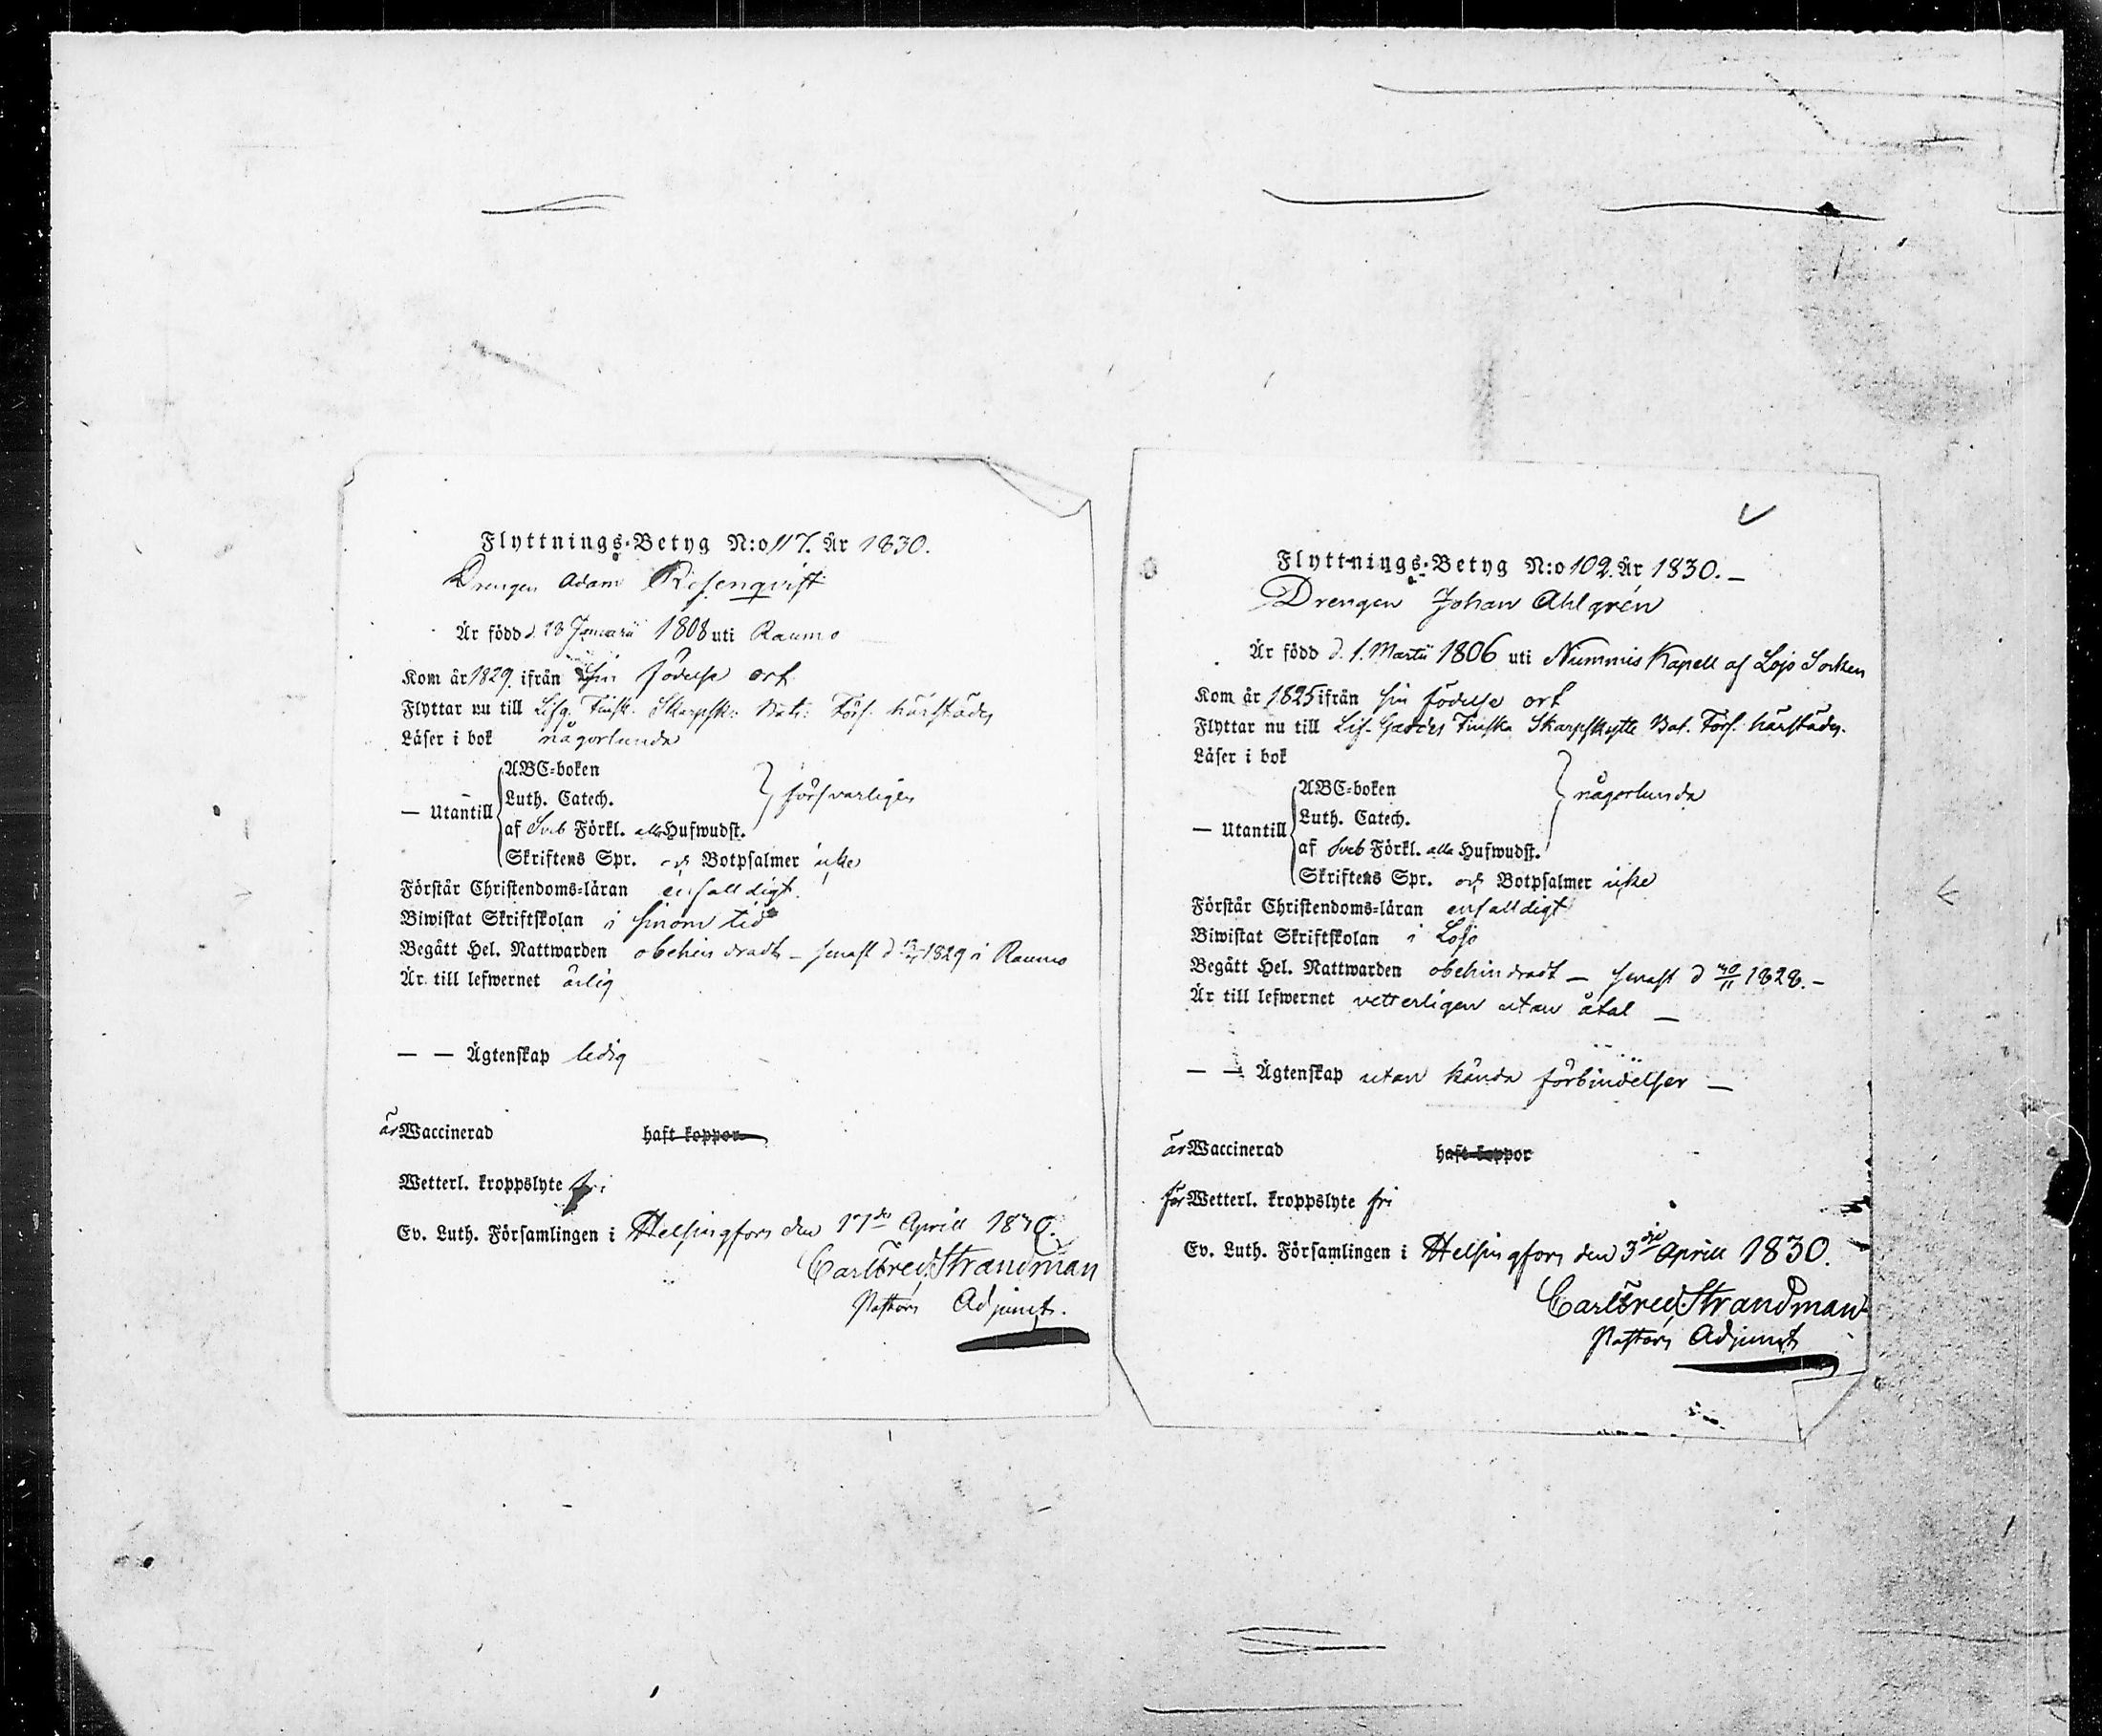 Flyttnings-Betyg N:o 117. År 1830.
Drengen Adam Rosenqvist
Är född d. 28 Januarii 1808 uti Raumo
Kom år 1829. ifrån sin födelse ort
Flyttar nu till Lifg. Finsk. Skarpsk: Bat: Förs. härstädes
Läser i bok någorlunda
— Utantill
ABC-boken
Luth. Catech.
af Sveb Förkl. alla Hufwudst.
försvarligen
Skriftens Spr. och Botpsalmer icke
Förstår Christendoms-läran enfalldigt.
Biwistat Skriftskolan i sinom tid
Begått Hel. Nattwarden obehindradt – senast d 1829 i Raumo
Är till lefwernet ärlig
— — Ägtenskap ledig
är Waccinerad haft koppor
Wetterl. kroppslyte fri
Ev. Luth. Församlingen i Helsingfors den 17de Aprill 1830.
Carl Fred. Strandman
Pastors Adjunct.
Flyttnings-Betyg N:o 102. År 1830. –
Drengen Johan Ahlgrén
Är född d. 1. Martii 1806 uti Nummis Kapell af Lojo Socken
Kom år 1825 ifrån sin födelse ort
Flyttar nu till Lif-Gardets Finska Skarpskytte Bat. Förs. härstädes.
Läser i bok
— Utantill
ABC-boken
Luth. Catech.
af Sveb Förkl. alla Hufwudst.
någorlunda
Skriftens Spr. och Botpsalmer icke
Förstår Christendoms-läran enfalldigt
Biwistat Skriftskolan i Lojo
Begått Hel. Nattwarden obehindradt – senast d 30/11 1828. –
Är till lefwernet vetterligen utan åtal –
— — Ägtenskap utan kända förbindelser –
är Waccinerad haft koppor
för Wetterl. kroppslyte fri
Ev. Luth. Församlingen i Helsingfors den 3dje Aprill 1830.
Carl Fred. Strandman
Pastors Adjunct